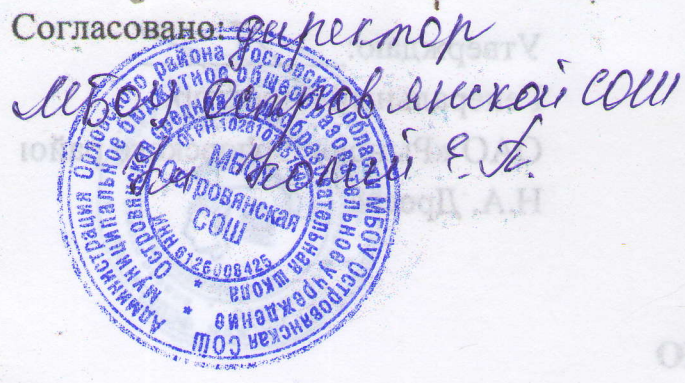 Согласовано: директор
МБОУ Островянской СОШ
Е.П.
Администрация Орловского района Ростовской области МБОУ Островянская СОШ
муниципальное бюджетное общеобразовательное учреждение
Островянская средняя общеобразовательная школа
ИНН 6126008425
МБОУ
Островянская
СОШ
Утверждаю:
Н.А.